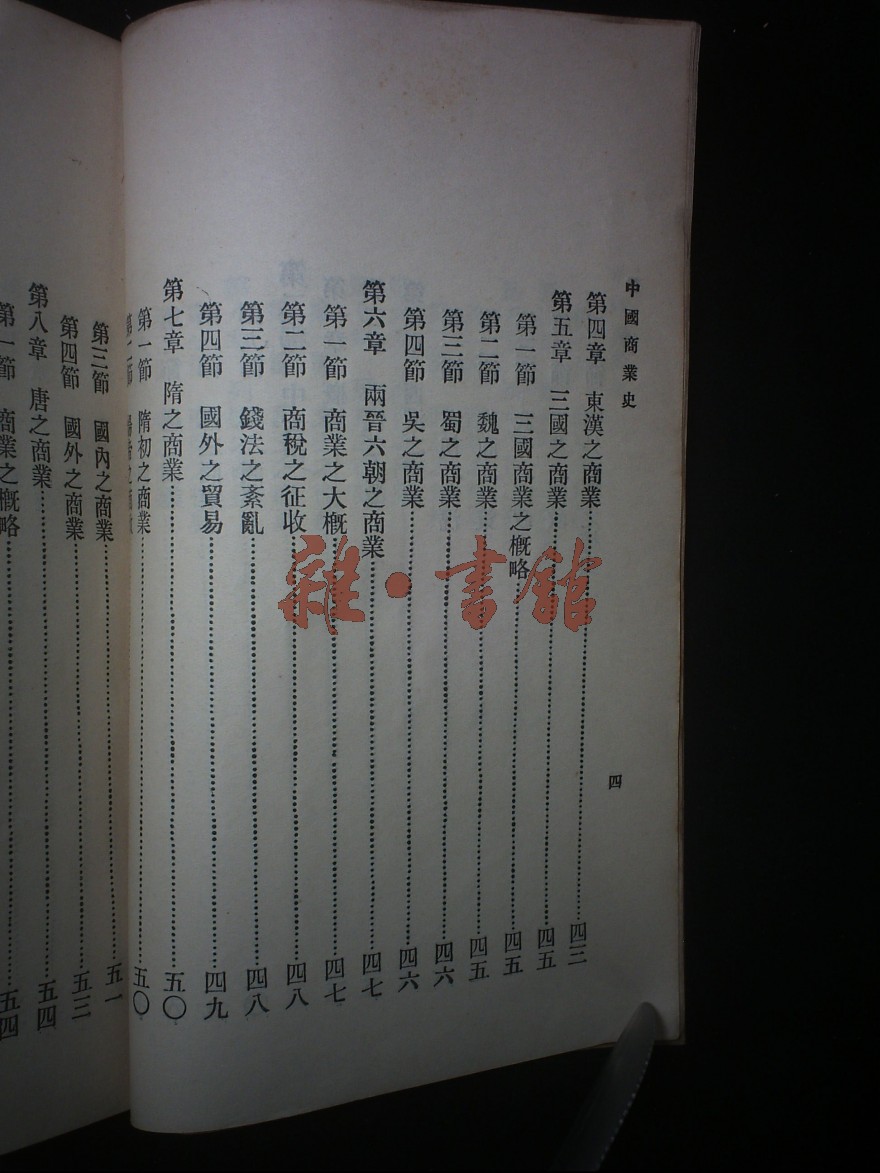 中國商業史
四
第四章 東漢之商業……四三
第五章 三國之商業……四五
第一節 三國商業之概略……四五
第二節 魏之商業……四五
第三節 蜀之商業……四六
第四節 吳之商業……四六
第六章 兩晉六朝之商業……四七
第一節 商業之大概……四七
第二節 商稅之征收……四八
第三節 錢法之紊亂……四八
第四節 國外之貿易……四九
第七章 隋之商業……五〇
第一節 隋初之商業……五〇
第二節
第三節 國內之商業……五一
第四節 國外之商業……五三
第八章 唐之商業……五四
第一節 商業之概略……五四
雜·書館